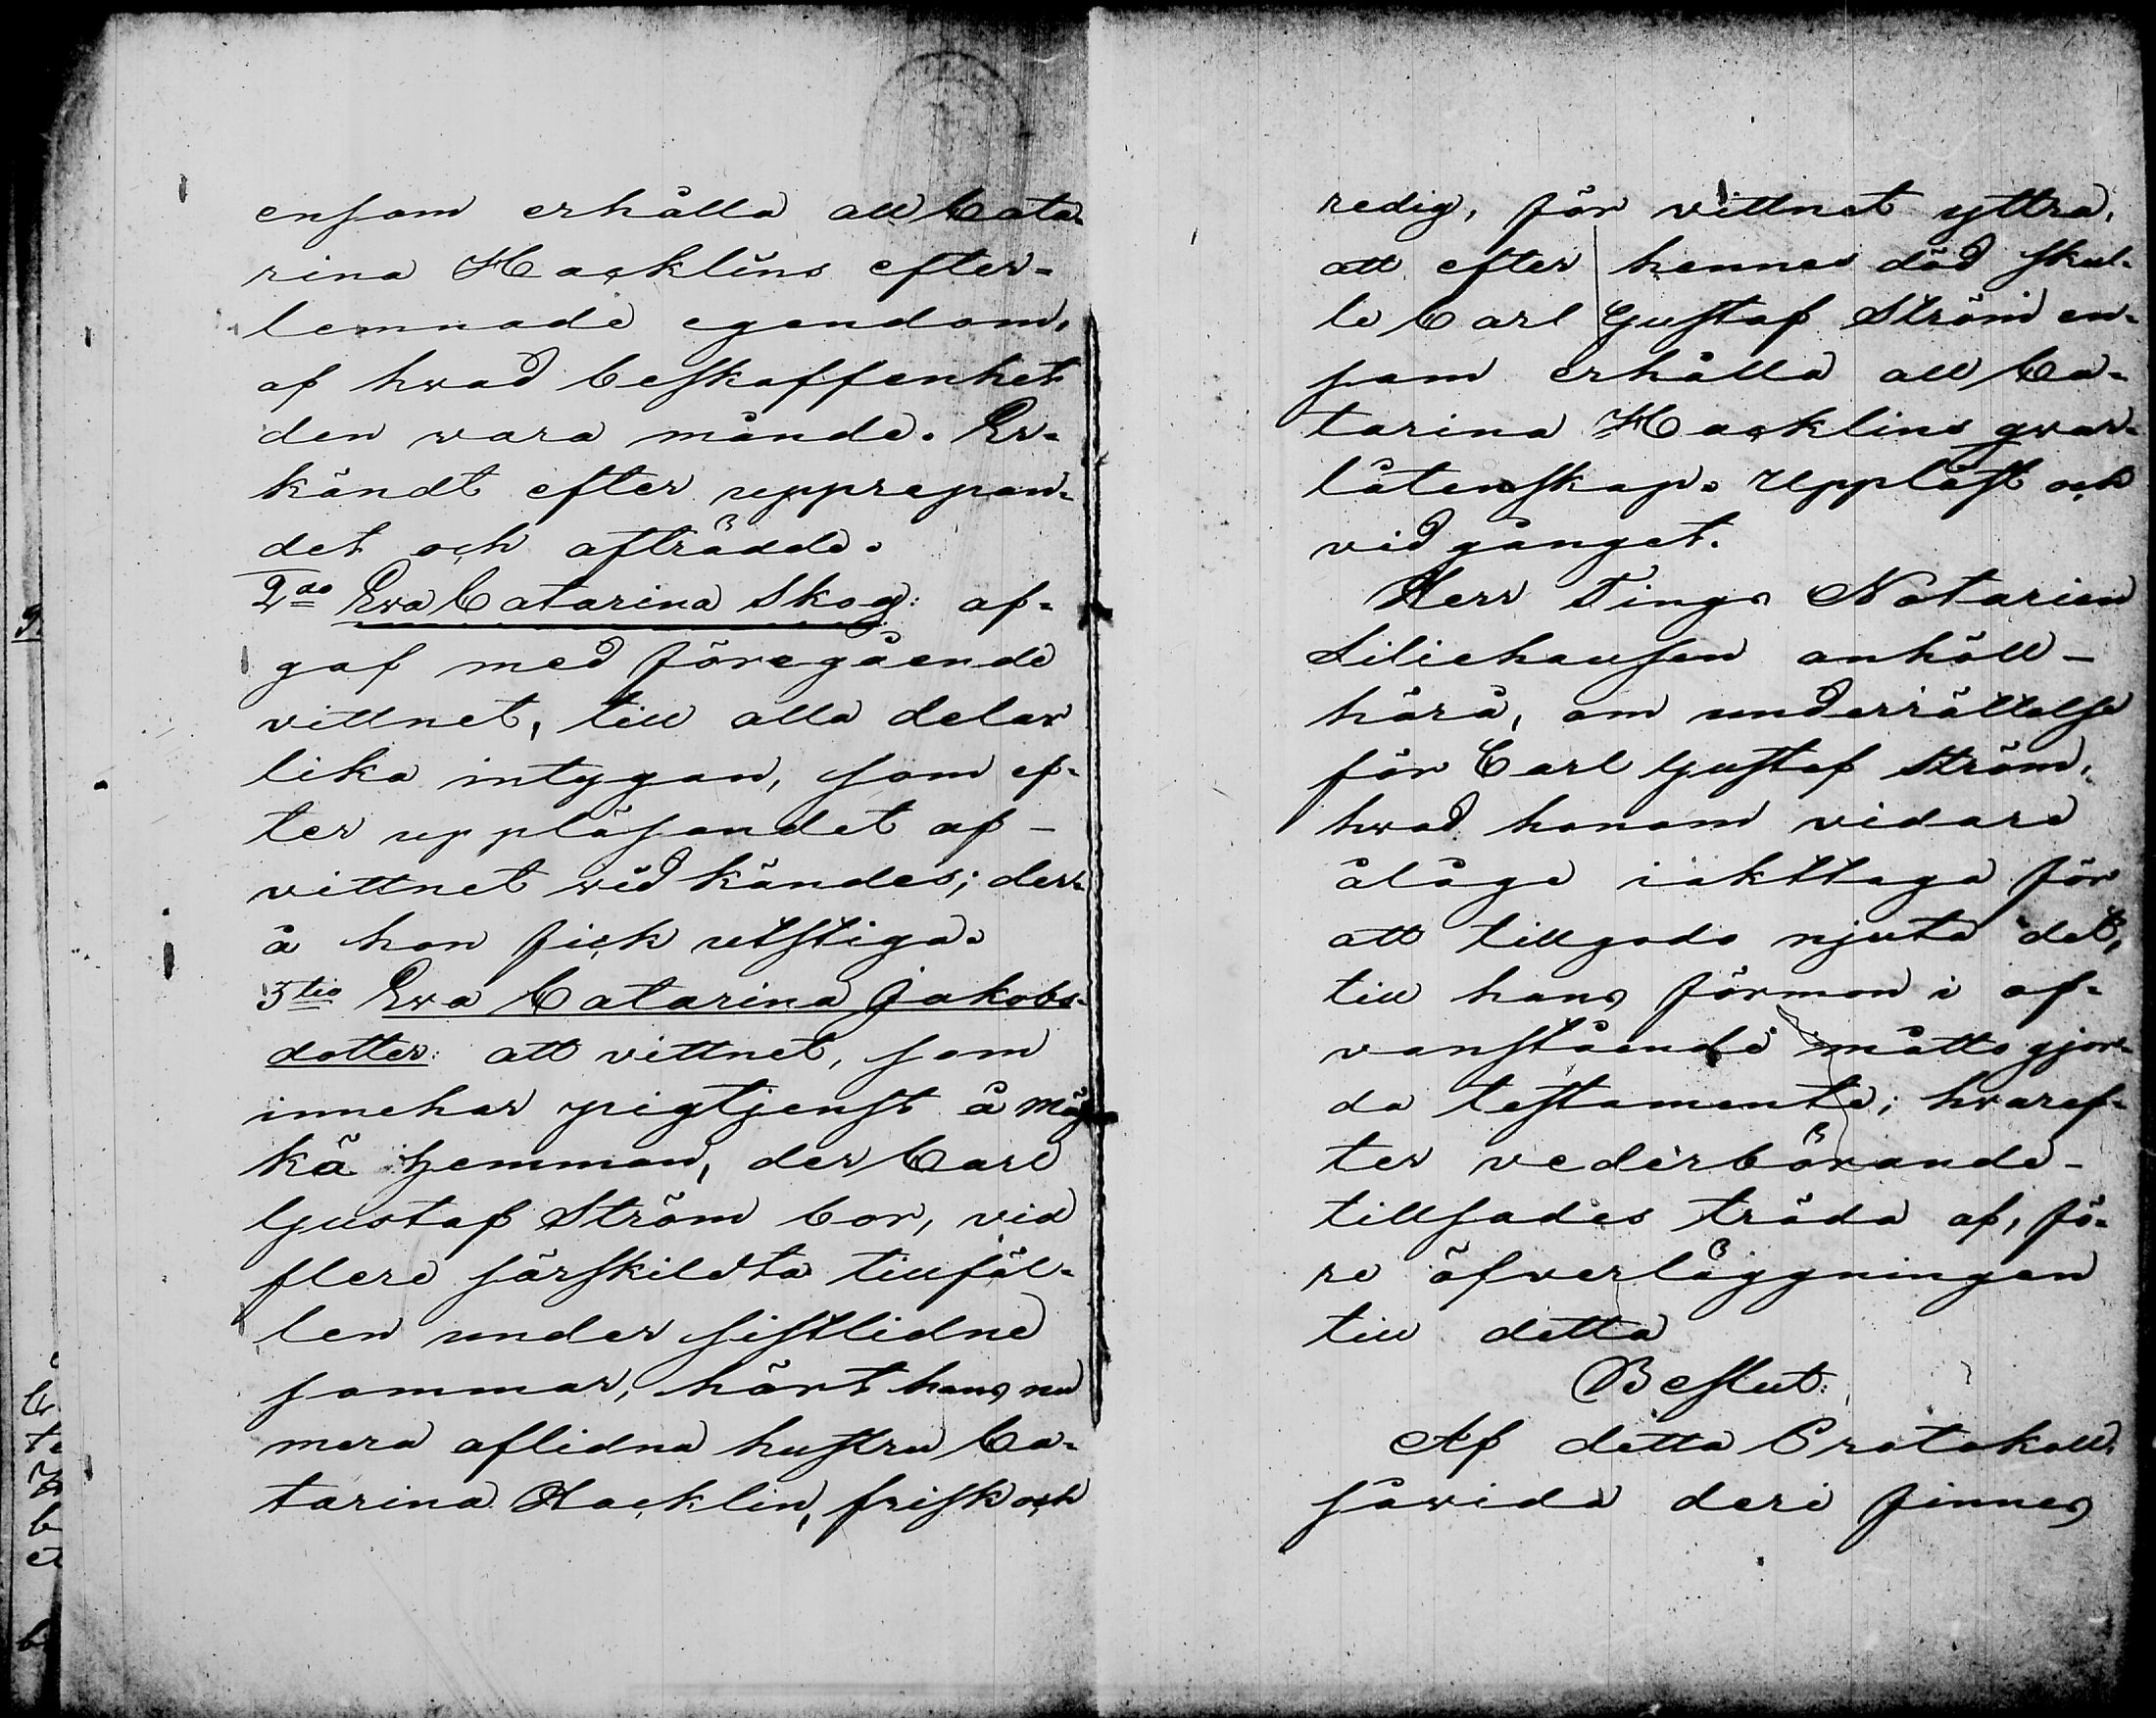 ensam erhålla all Cata-
rina Hacklins efter-
lemnade egendom,
af hwad beskaffenhet
den wara månde. Er-
kändt efter upprepan-
det och afträdde.
2do Ewa Catarina Skog: af-
gaf med föregående
vittnet, till alla delar
lika intygan, som ef-
ter uppläsandet af
vittnet widkändes; der-
å hon fick utstiga.
3tio Ewa Catarina Jakobs-
dotter: att vittnet, som
innehar pigtjenst å
kä hemman, der Carl
Gustaf Ström bor, vid
flere särskildta tillfäl-
len under sistlidne
sommar, hört hans nu
mera aflidna hustru Ca-
tarina Hacklin, frisk och
redig, för vittnet yttra,
att efter hennes död skul-
le Carl Gustaf Ström en-
sam erhålla all Ca-
tarina Hacklins qvar-
låtenskap. Uppläst och
vidgånget.
Herr Tings Notarien
Liliehausen anhöll-
härå, om underrättelse
för Carl Gustaf Ström,
hwad honom vidare
ålåge iakttaga för
att tillgodo njuta det,
till hans förmon i of-
vanstående måtto gjor-
da testamente; hvaref-
ter vederbörande-
tillsades träda af, fö-
re öfverläggningen
till detta
Beslut:
Af detta Protokoll,
såvida deri finnes